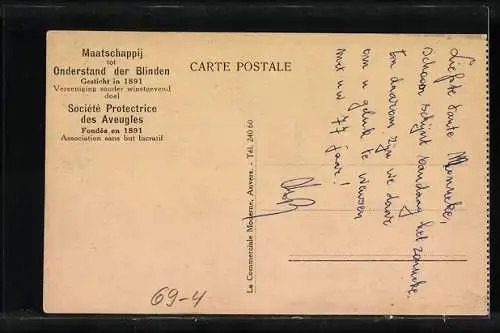 Maatschappij
tot
Onderstand der Blinden
Gesticht in 1891
Vereeniging zonder winstgevend
doel
Société Protectrice
des Aveugles
Fondée en 1891
Association sans but lucratif
CARTE POSTALE
La Commerciale Moderne, Anvers. - Tél. 240 60
Liefste tante Monneke,
schijnt vandaag het zonneke.
En daarom zijn we daar
om u geluk te wensen
met uw 77 jaar!
69-4